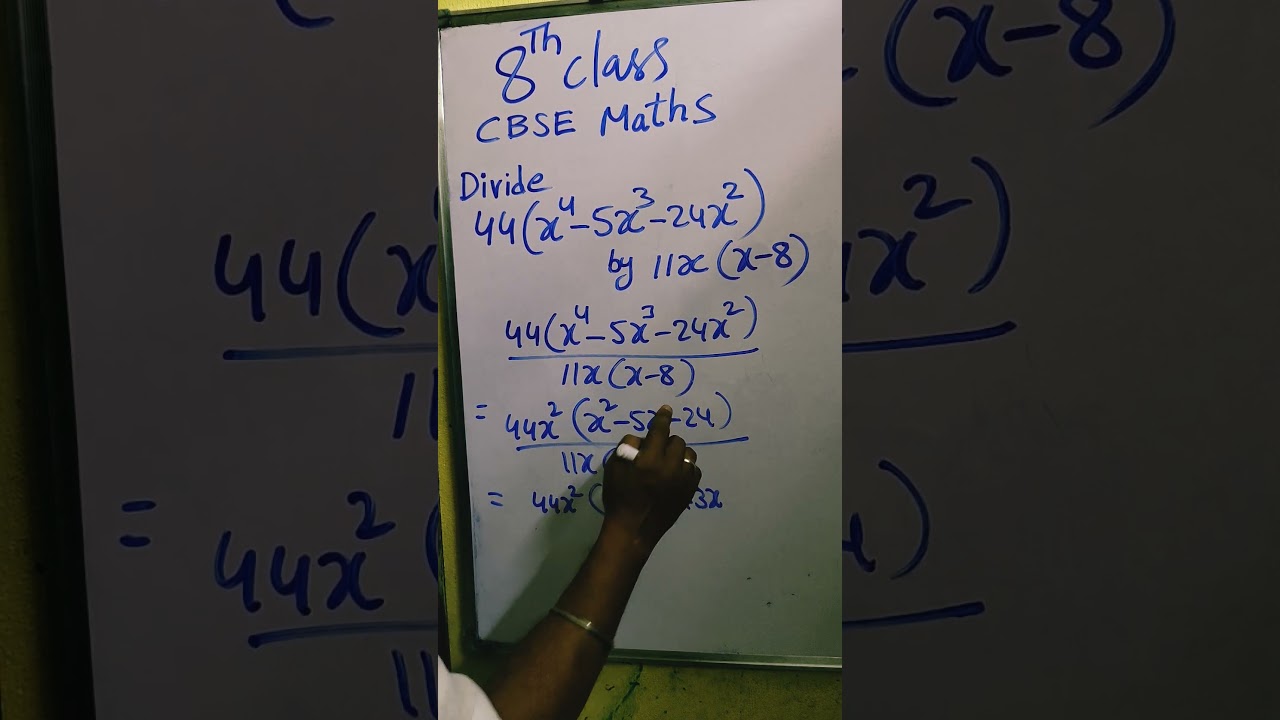 8Th class
CBSE Maths
Divide
44(x⁴-5x³-24x²)
by 11x(x-8)
44(x⁴-5x³-24x²)
11x(x-8)
= 44x²(x²-5x-24)
11x(
= 44x²( 3x